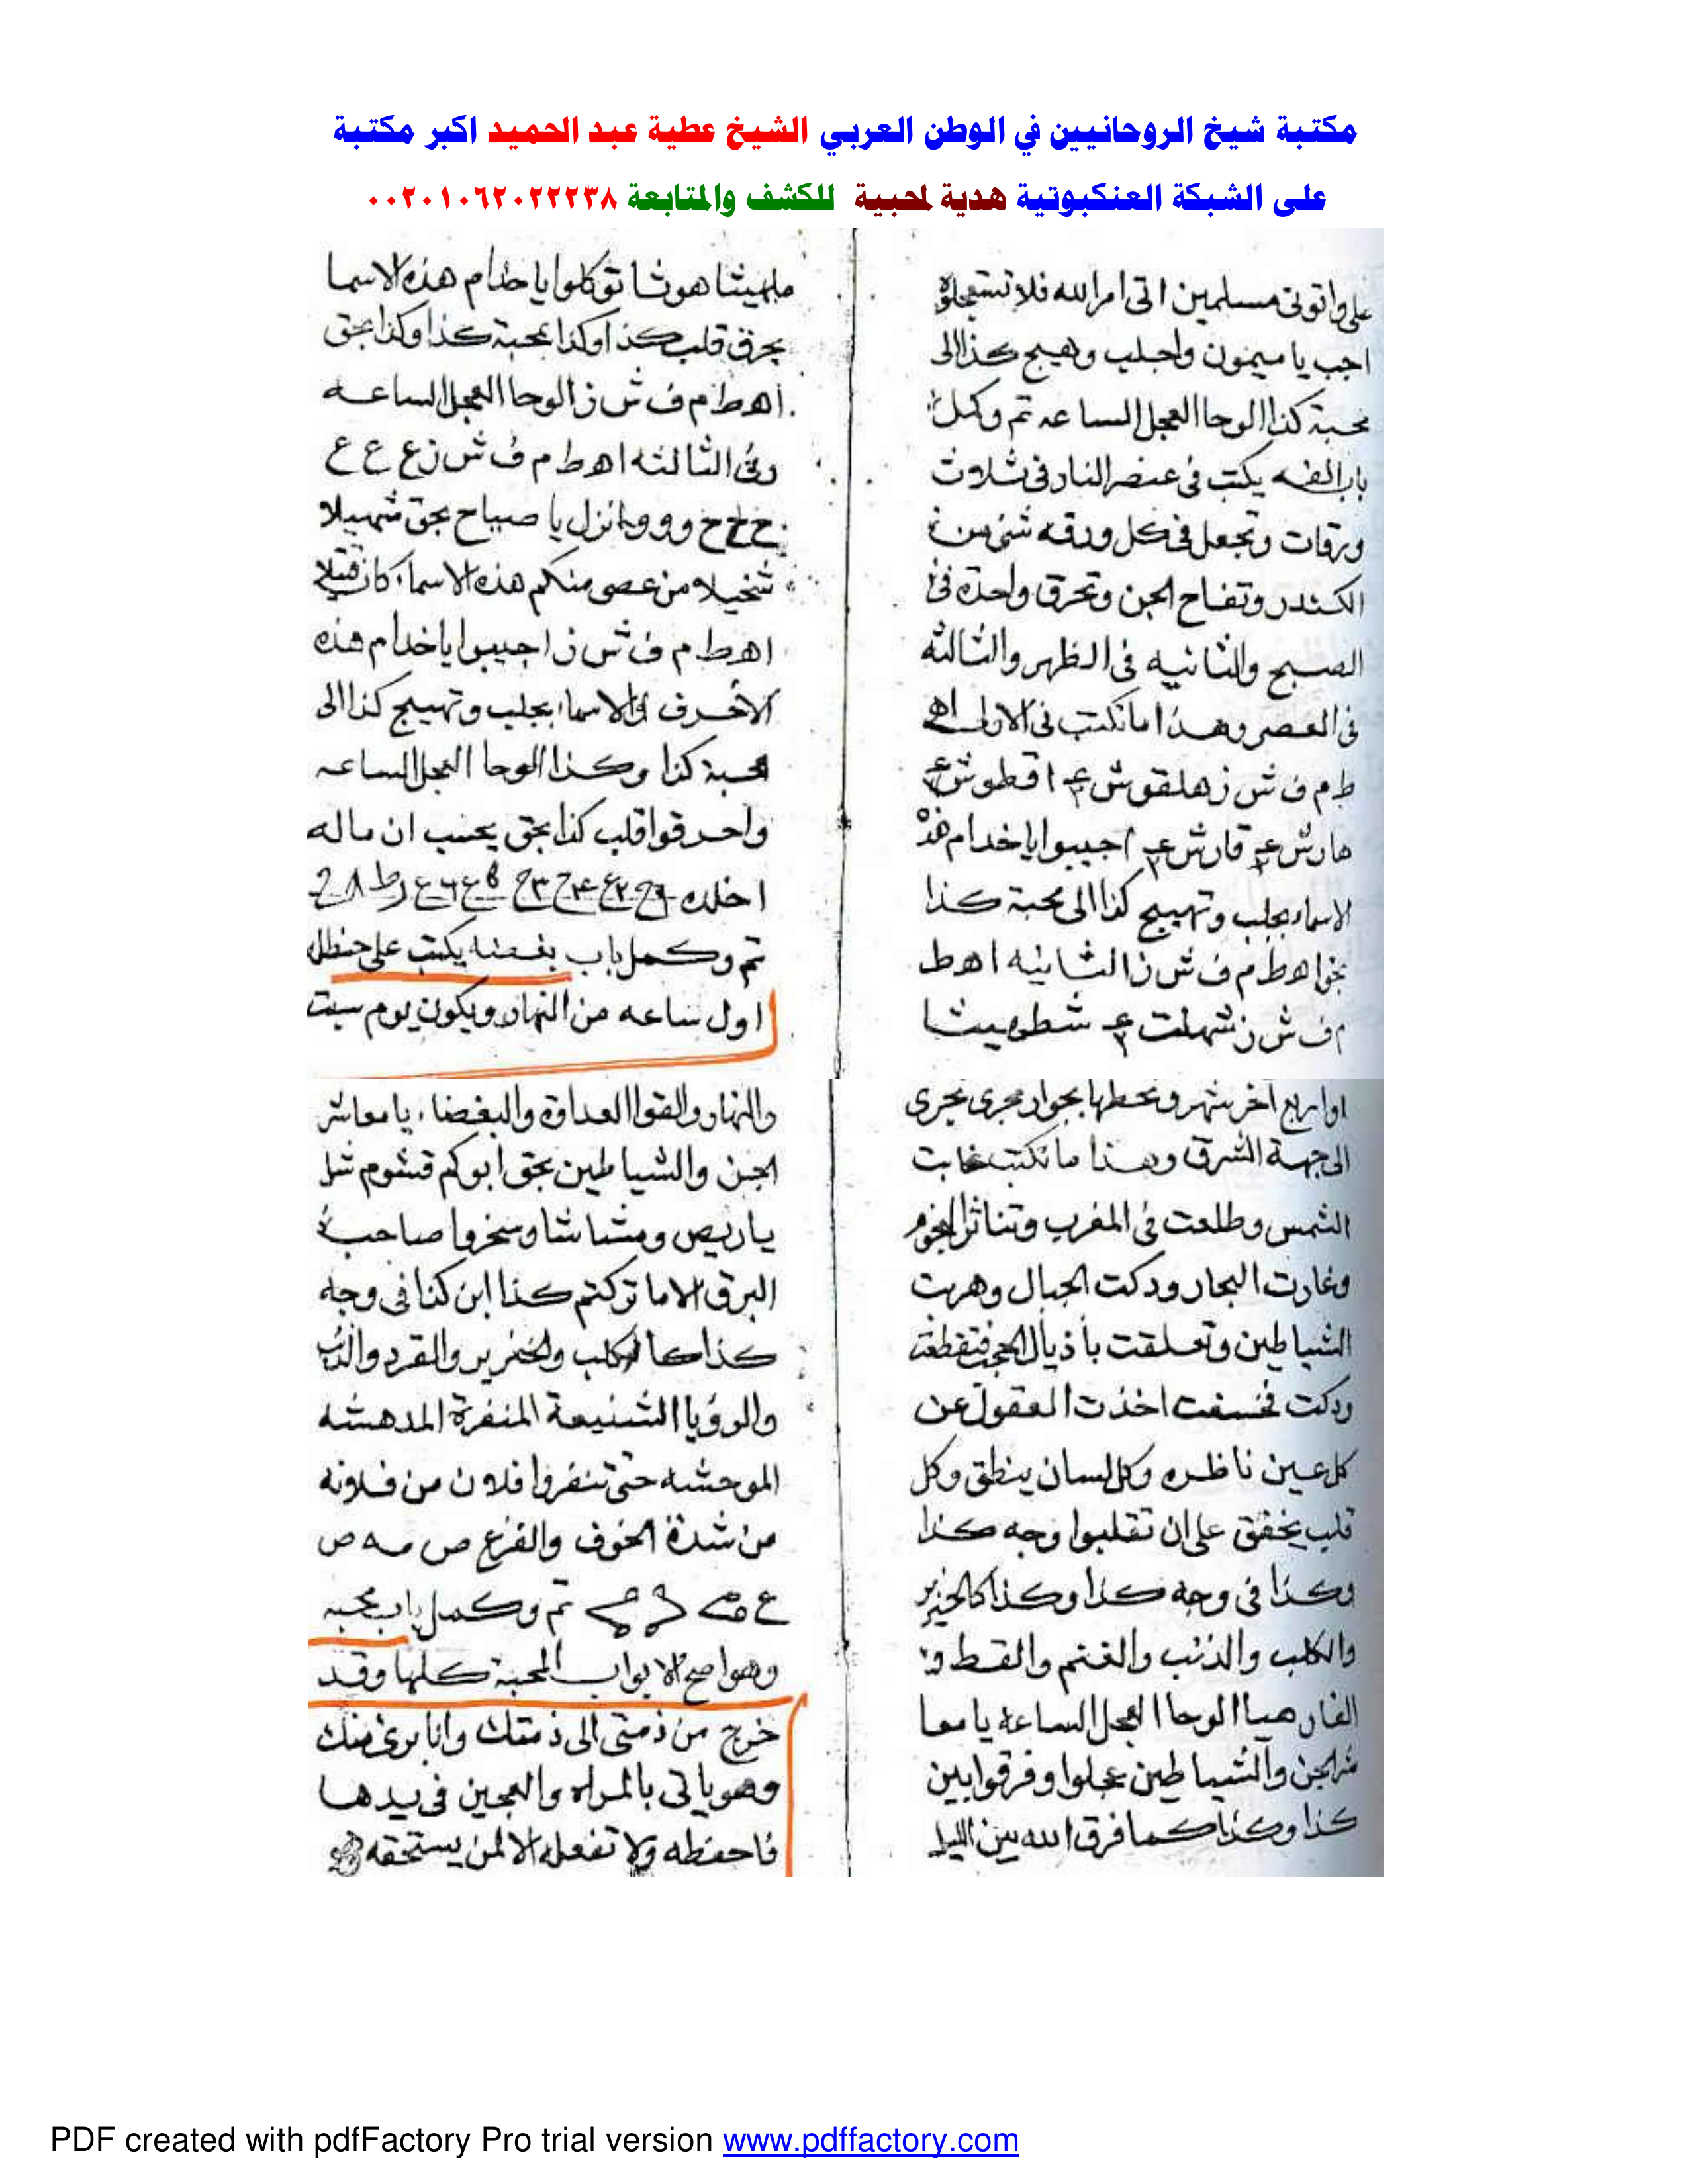 مكتبة شيخ الروحانيين في الوطن العربي الشيخ عطية عبد الحميد اكبر مكتبة
على الشبكة العنكبوتية هدية لمحبية للكشف والمتابعة ٠٠٢٠١٠٦٢٠٢٢٢٣٨
على واتونى مسلمين اتى امر الله فلا تستعجلوه
اجب يا ميمون واجلب وهيج كذا الى
محبة كذا الوحا العجل الساعه تم وكمل
باب الفه يكتب فى عنصر النار فى ثلاث
ورقات وتجعل فى كل ورقه شئ من
الكندر وتفاح الجن وتحرق واحدة فى
الصبح والثانيه فى الظهر والثالثه
فى العصر وهذا ما تكتب فى الاولى اه
ط م ف ش ذ هلقوش ع٣ اقطوش ع٣
هارش ع٣ قارش ع٣ اجيبوا يا خدام هذه
الاسماء بجلب وتهييج كذا الى محبة كذا
بحق اهطم ف ش ذ الثانيه اهط
م ف ش ذ شهلت ع٣ شطهيثا
ملهيثا هوثا توكلوا يا خدام هذه الاسما
بحرق قلب كذا وكذا بمحبة كذا وكذا بحق
اهط م ف ش ذ الوحا العجل الساعه
وفى الثالثه اهط م ف ش ذ ع ع ع
ح ح ح و و و انزل يا صياح بحق شهيلا
شخيلا من عصى منكم هذه الاسماء كان قتيلا
اهط م ف ش ذ اجيبوا يا خدام هذه
الاحرف والاسماء بجلب وتهييج كذا الى
محبة كذا وكذا الوحا العجل الساعه
واحرقوا قلب كذا بحق يحسب ان ماله
اخلده
تم وكمل باب بغضه يكتب على حنظله
اول ساعه من النهار ويكون يوم سبت
او اربع اخر شهر وتحطها بجوار مجرى يجرى
الى جهة الشرق وهذا ما تكتب غابت
الشمس وطلعت فى المغرب وتناثر النجوم
وغارت البحار ودكت الجبال وهربت
الشياطين وتعلقت بأذيال الحجب فتقطعت
ودكت فخسفت اخذت العقول عن
كل عين ناظره وكل لسان ينطق وكل
قلب يخفق على ان تقلبوا وجه كذا
وكذا فى وجه كذا وكذا كالخنزير
والكلب والذئب والغنم والقط و
الفار هيا الوحا العجل الساعه يا معا
شر الجن والشياطين عجلوا وفرقوا بين
كذا وكذا كما فرق الله بين الليل
والنهار والقوا العداوة والبغضاء يا معاشر
الجن والشياطين بحق ابوكم قشوم شل
ياريص ومشاشا وسخروا صاحب
البرق الا ما تركتم كذا ابن كذا فى وجه
كذا كالكلب والخنزير والقرد والدب
والرؤيا الشنيعة المنفرة المدهشه
الموحشه حتى تنفروا فلان من فلانه
من شدة الخوف والفزع ص مه ص
تم وكمل باب محبه
وهو اصح الابواب المحبة كلها وقد
خرج من ذمتى الى ذمتك وانا برئ منك
وهو ياتى بالمراه والعجين فى يدها
فاحفظه ولا تفعله الا لمن يستحقه
PDF created with pdfFactory Pro trial version www.pdffactory.com